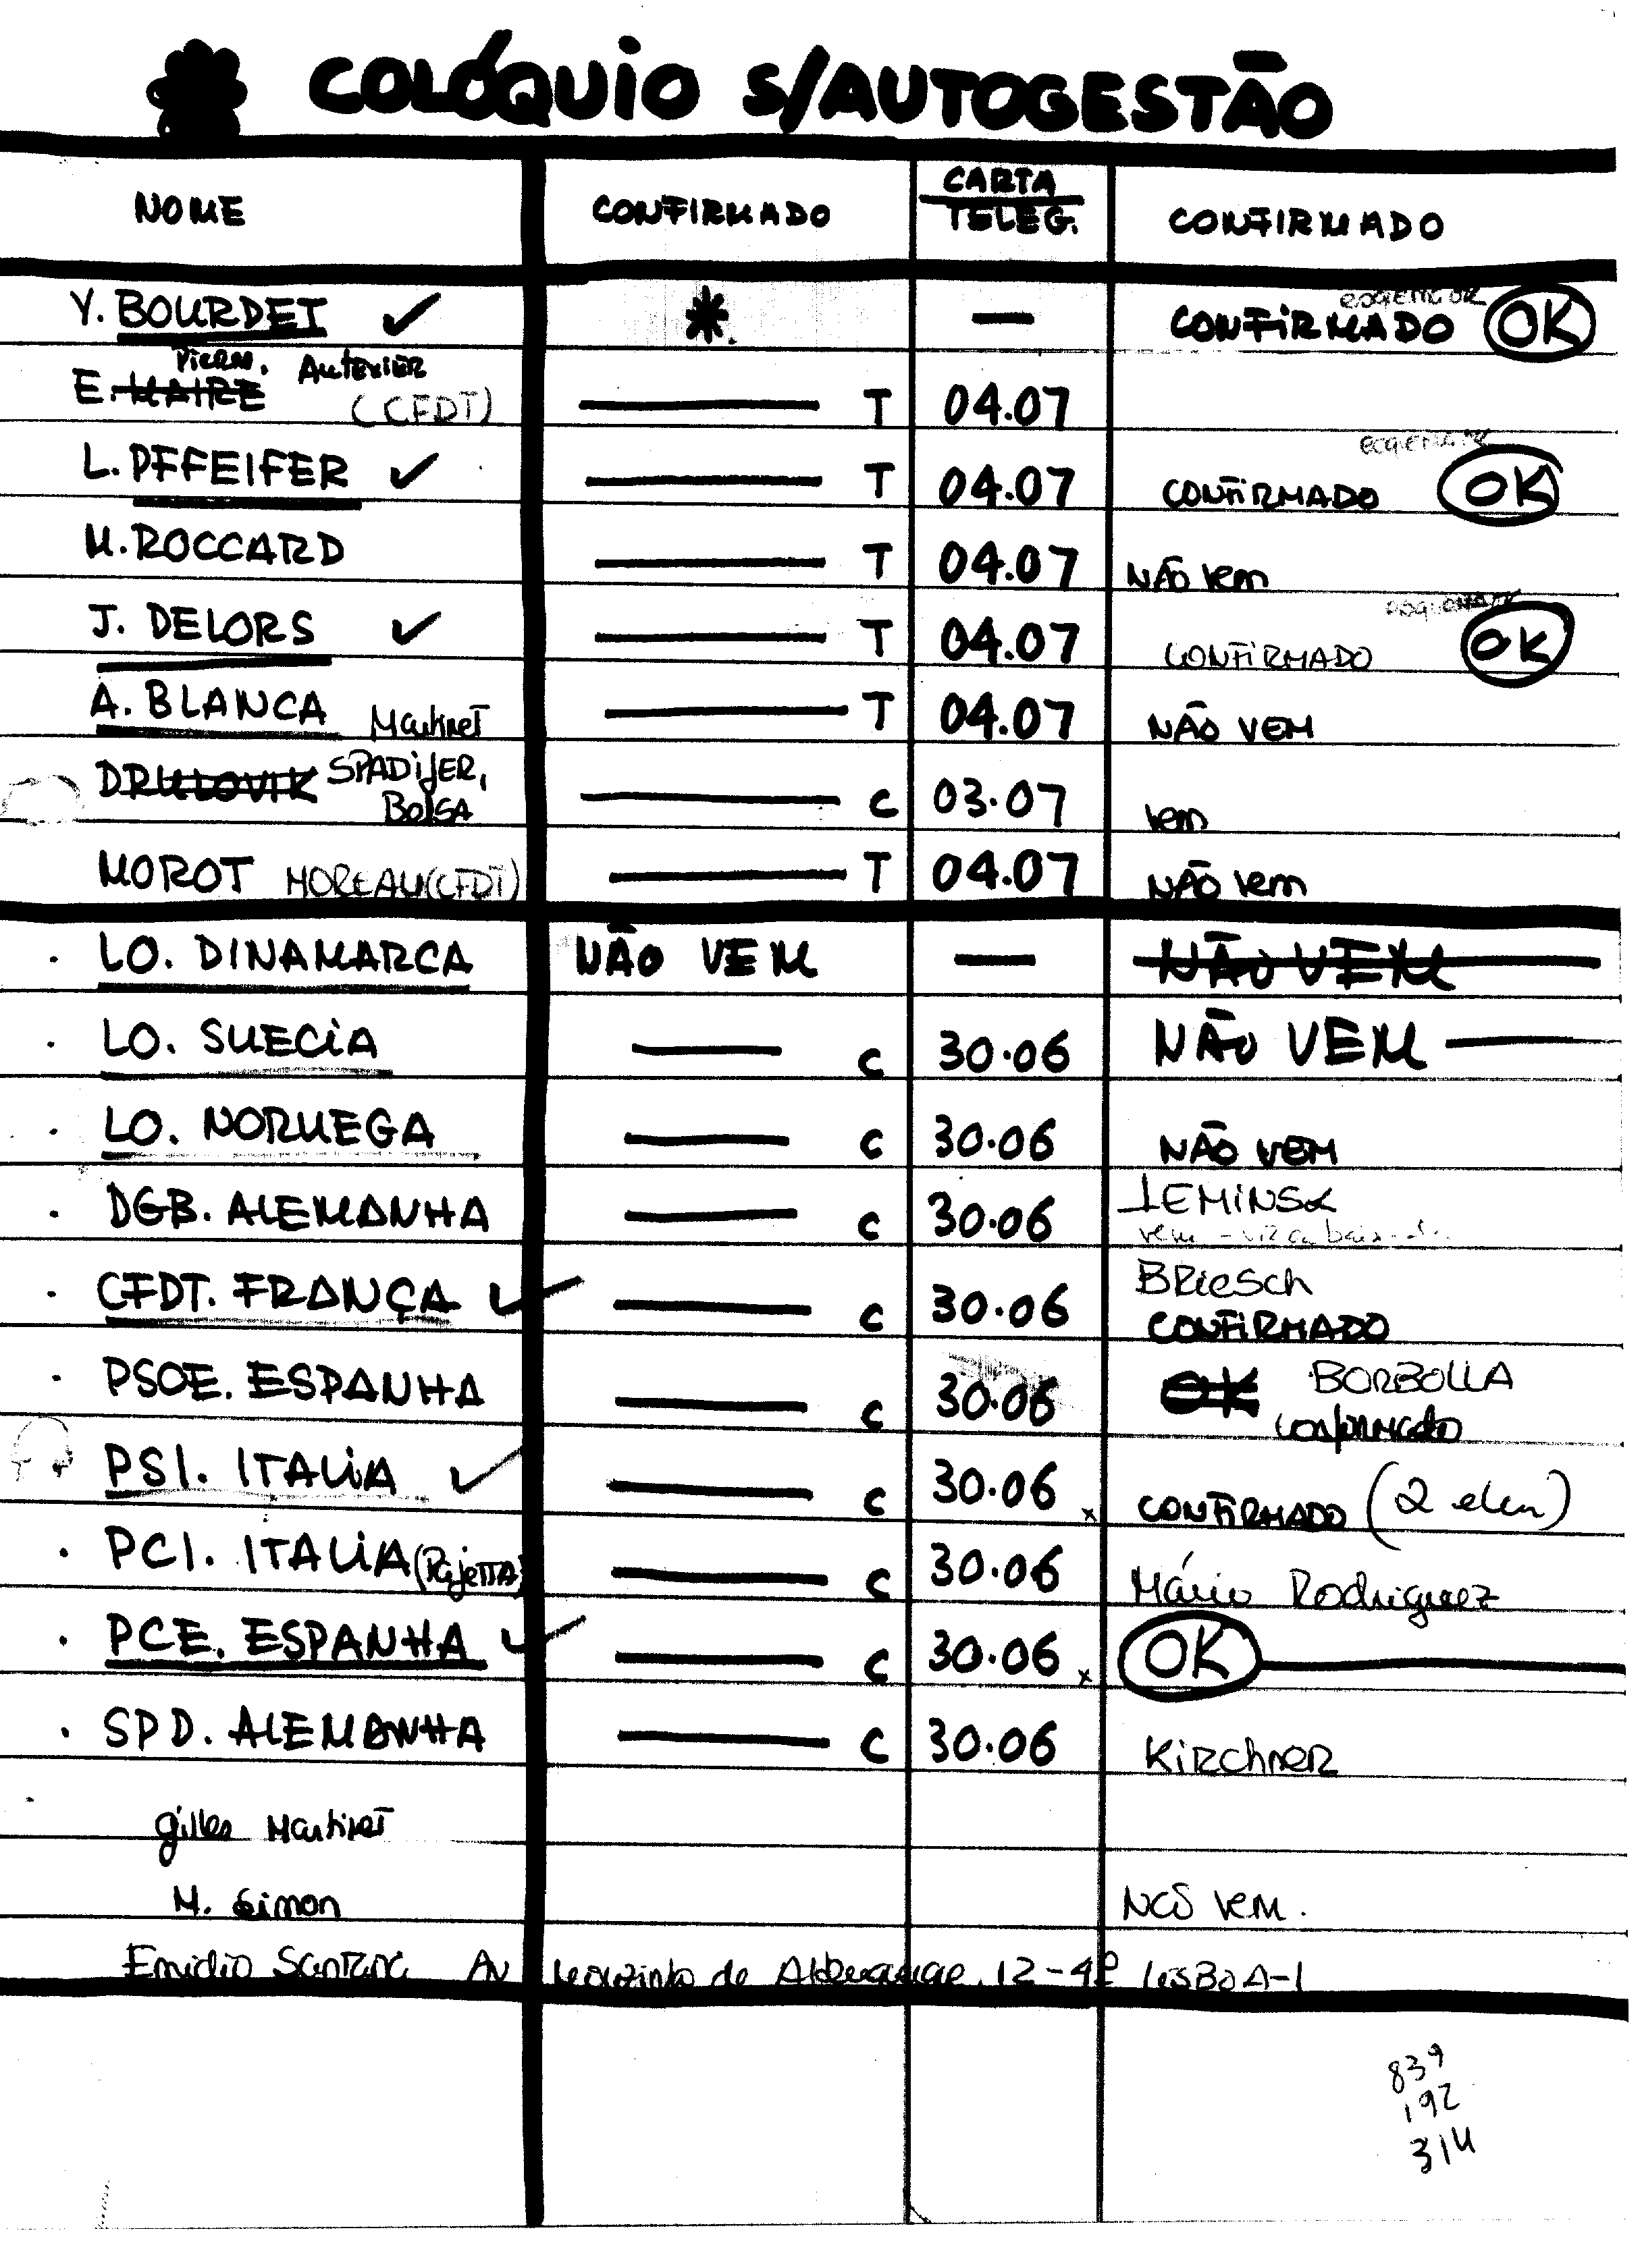 COLÓQUIO S/AUTOGESTÃO
NOME CONFIRMADO CARTA CONFIRMADO
TELEG.
Y. BOURDET ✓ * — CONFIRMADO OK
Pierre. Autexier
E. MAIRE (CFDT) — T 04.07
L. PFFEIFER ✓ — T 04.07 CONFIRMADO OK
M. ROCCARD — T 04.07 NÃO vem
J. DELORS ✓ — T 04.07 CONFIRMADO OK
A. BLANCA Martinet — T 04.07 NÃO VEM
DRULOVIK SPADIJER,
Bolsa — C 03.07 vem
MOROT MOREAU (CFDT) — T 04.07 NÃO vem
· LO. DINAMARCA NÃO VEM — NÃO VEM
· LO. SUECIA — C 30.06 NÃO VEM —
· LO. NORUEGA — C 30.06 NÃO VEM
· DGB. ALEMANHA — C 30.06
vem
Briesch
· CFDT. FRANÇA ✓ — C 30.06 CONFIRMADO
· PSOE. ESPANHA — C 30.06 OK BORBOLLA
confirmado
· PSI. ITALIA ✓ — C 30.06 x CONFIRMADO (2 elem)
· PCI. ITALIA (Pajetta) — C 30.06 Mário Rodriguez
· PCE. ESPANHA ✓ — C 30.06 x OK —
· SPD. ALEMANHA — C 30.06 Kirchner
gilles Martinet
M. Simon Não vem.
Emidio Santana Av Mouzinho de Albuquerque, 12-4º LISBOA-1
839
192
314